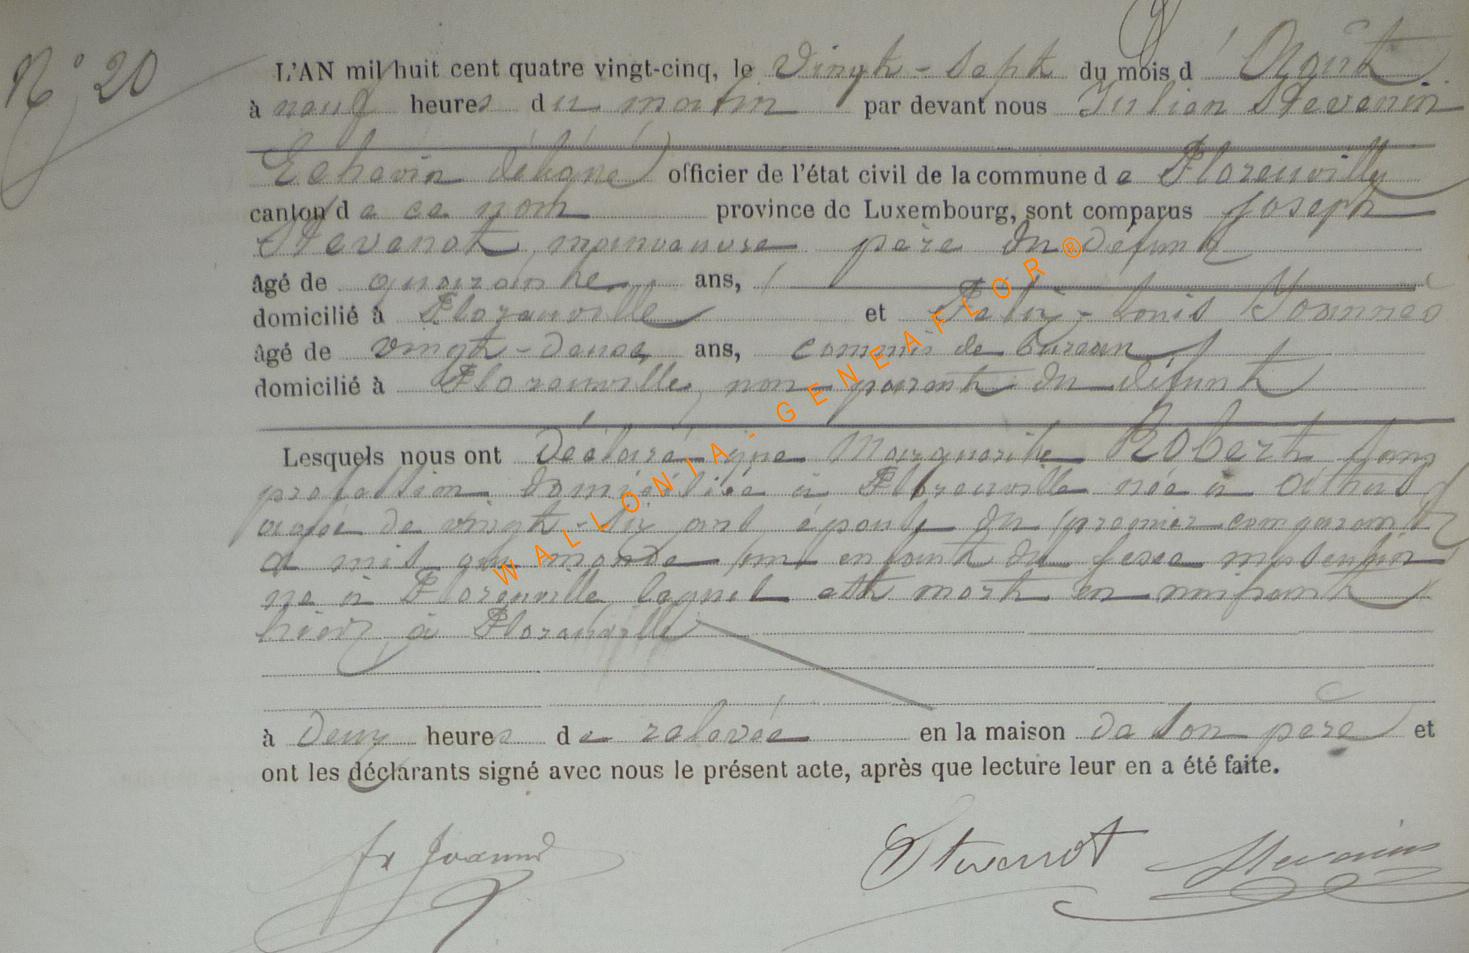 N° 20
L'AN mil huit cent quatre vingt-cinq, le vingt-sept du mois d'Août
à neuf heures du matin par devant nous Julien Stevenin
Echevin délégué officier de l'état civil de la commune de Florenville
canton de ce nom province de Luxembourg, sont comparus Joseph
Stevenot, manoeuvre père du defunt
âgé de quarante ans,
domicilié à Florenville et Felix-Louis Joannès
âgé de vingt-deux ans, commis de bureau
domicilié à Florenville, non parent du défunt
Lesquels nous ont déclaré que Marguerite Robert sans
profession domiciliée à Florenville née à
agée de vingt-six ans épouse du premier comparant
a mis au monde un enfant du sexe masculin
né à Florenville lequel est mort en naissant
hier à Florenville
à deux heures de relevée en la maison de son père et
ont les déclarants signé avec nous le présent acte, après que lecture leur en a été faite.
Joannès Stevenot Stevenin
WALLONIA-GENEAFLOR®